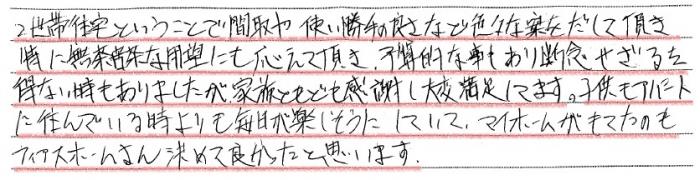 2世帯住宅ということで間取や使い勝手の良さなど色々な案をだして頂き
時に無茶苦茶な用望にも応えて頂き、予算的な事もあり断念せざるを
得ない時もありましたが、家族ともども感謝し大変満足してます。子供もアパート
に住んでいる時よりも毎日が楽しそうにしていて、マイホームがもてたのも
フィアスホームさん決めて良かったと思います。